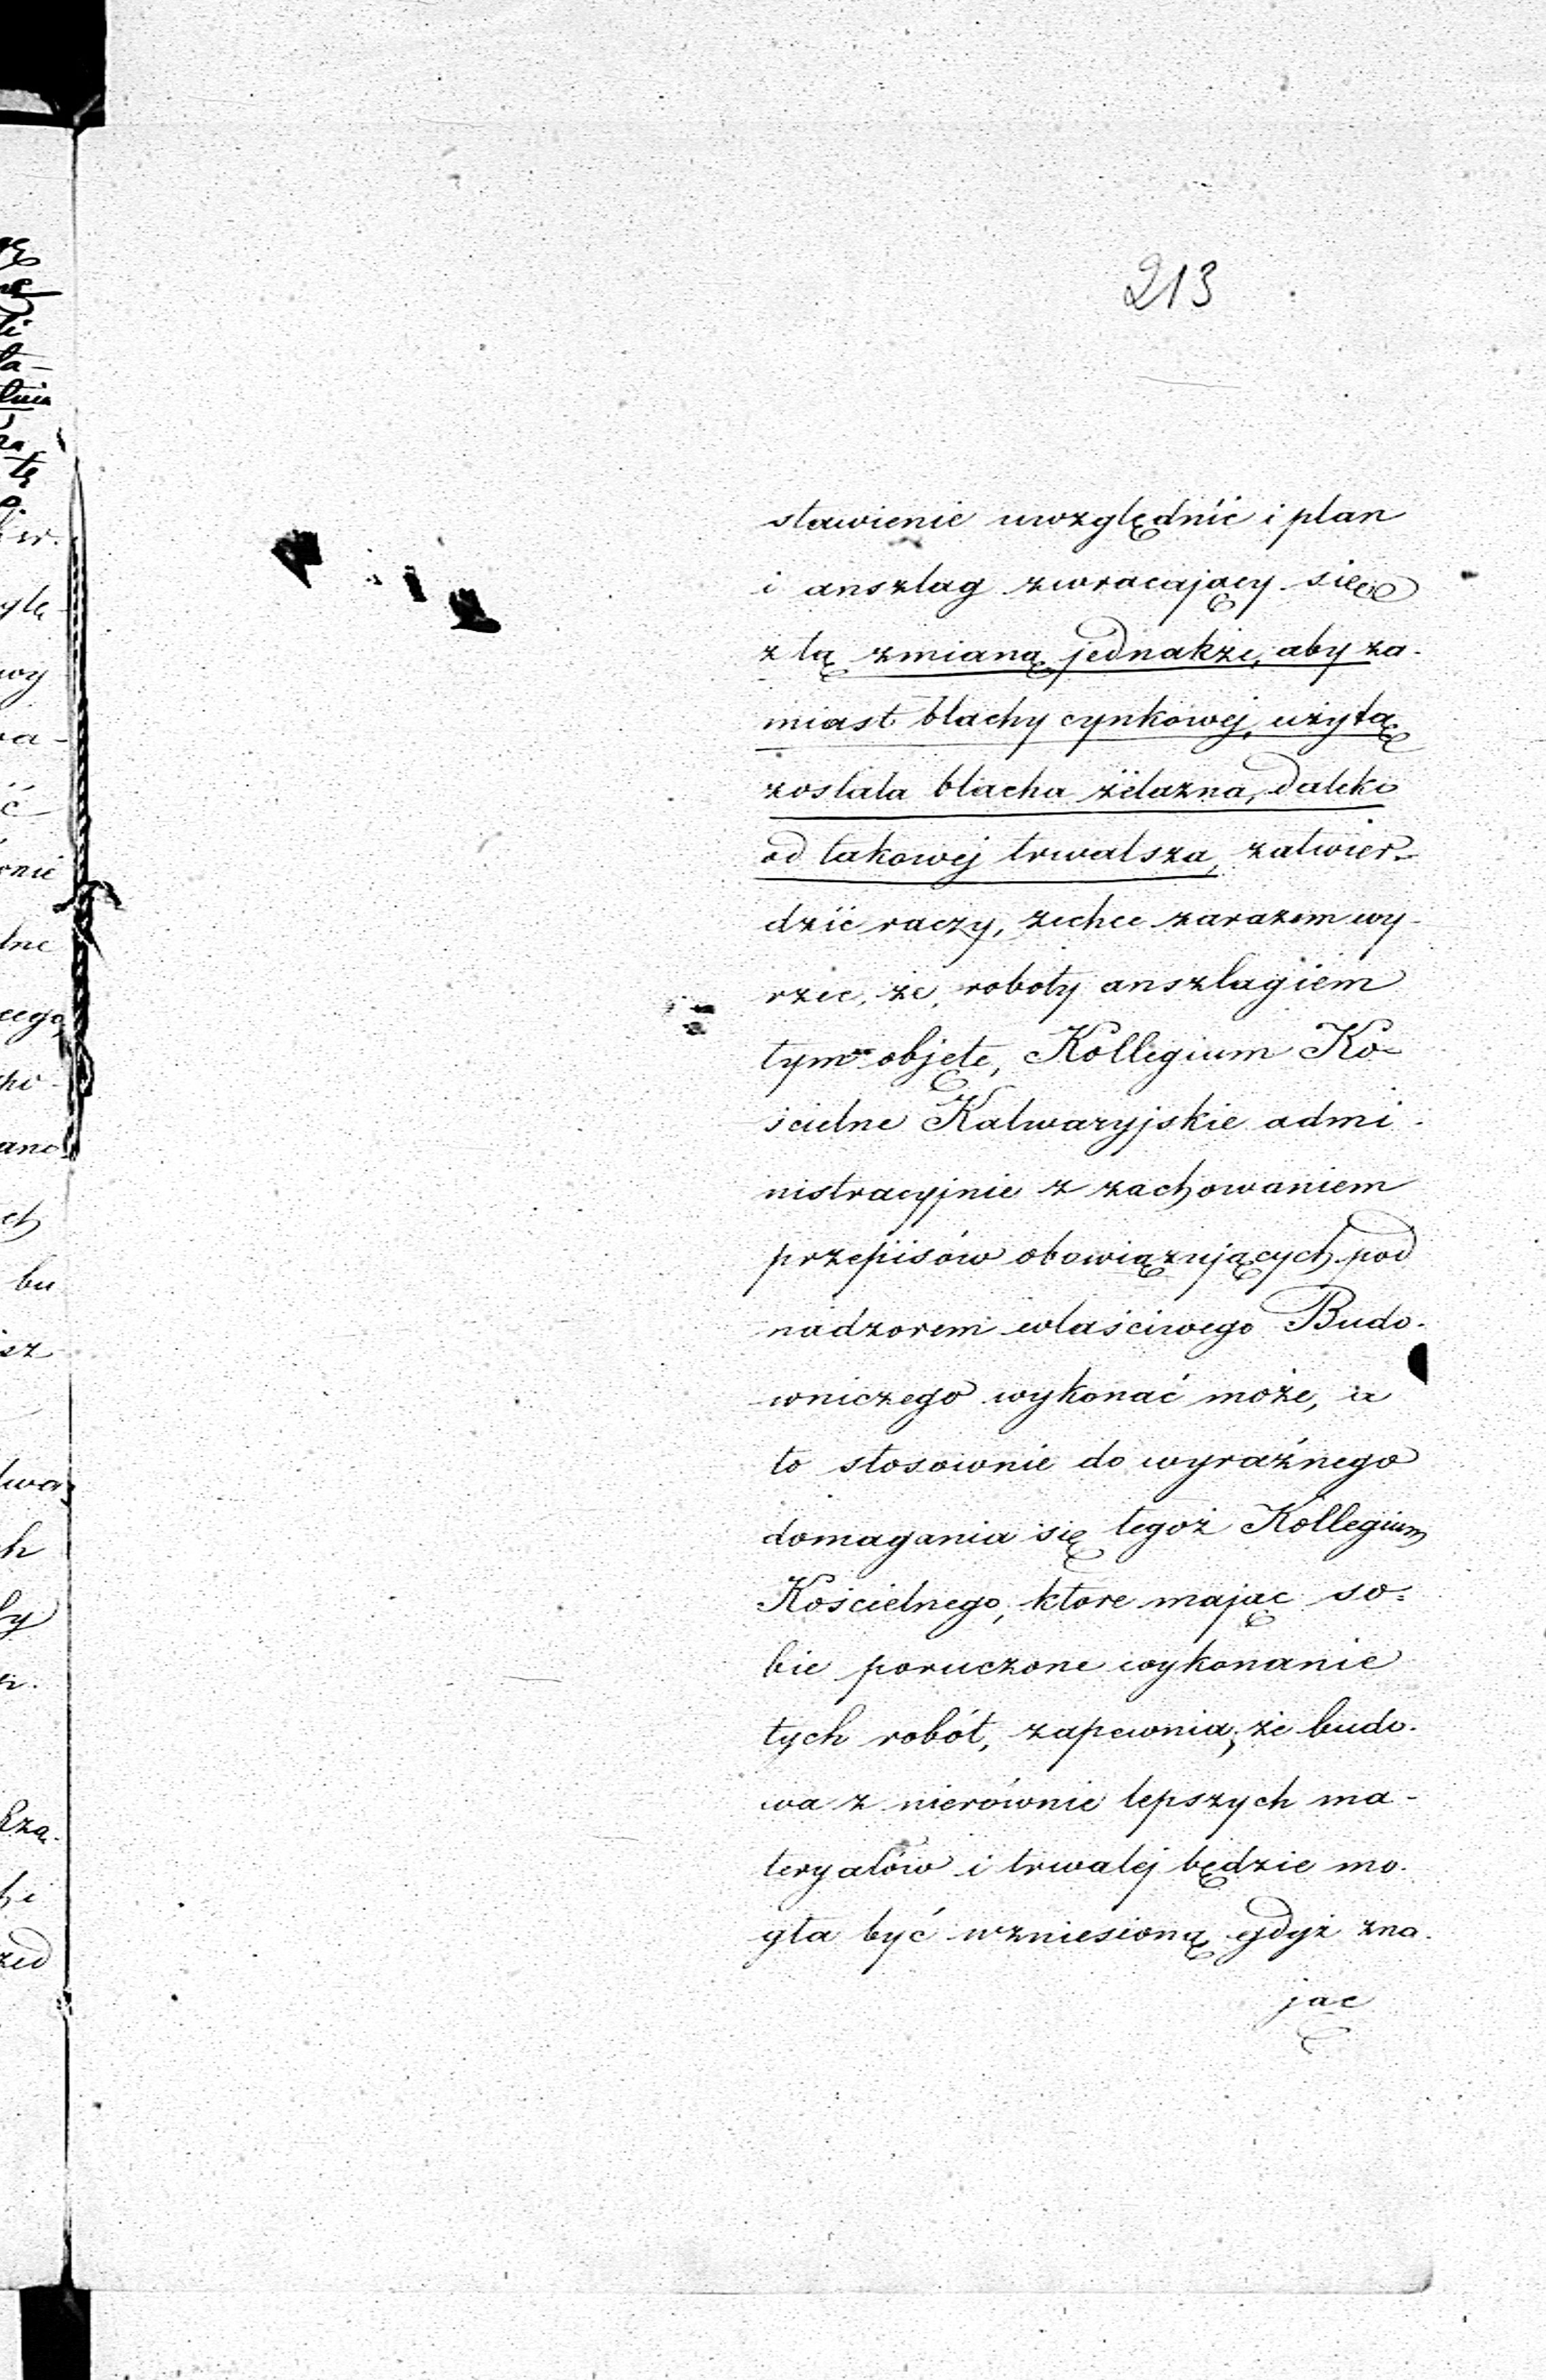 213
stawienie uwzględnić i plan
i anszlag zwracający się
z tą zmianą jednakże, aby za-
miast blachy cynkowej, użytą
została blacha żelazna, daleko
od takowej trwalsza, zatwier-
dzić raczy, zechce zarazem wy-
rzec, że, roboty anszlagiem
tym objęte, Kollegium Ko-
ścielne Kalwaryjskie admi-
nistracyjnie z zachowaniem
przepisów obowiązujących pod
nadzorem właściwego Budo-
wniczego wykonać może, a
to stosownie do wyraźnego
domagania się tegoż Kollegium
Kościelnego, które mając so-
bie poruczone wykonanie
tych robót, zapewnia, że budo-
wa z nierównie lepszych ma-
teryałów i trwalej będzie mo-
gła być wzniesioną gdyż zna-
jąc